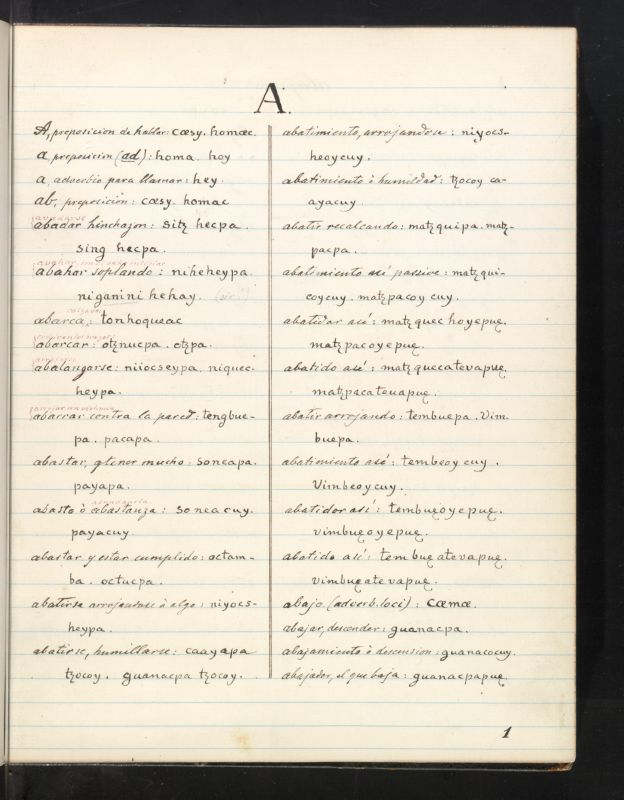 A.
A, preposicion de hablar: cæsy. homæc.
a, preposicion (ad): homa. hoy
a, adverbio para llamar: hey.
ab, preposicion: cæsy. homac
abadar hinchazon: sitz hecpa.
sing hecpa.
abahar soplando: niheheypa.
niganini hehay.
abarca: tonhoqueac
abarcar: otznucpa. otzpa.
abalangarse: niiocseypa. niquec-
heypa.
arrojar
abarrar contra la pared: tengbue-
pa. pacapa.
abastar, q tener mucho: soneapa.
payapa.
abundancia
abasto ò abastanza: sonea cuy.
payacuy.
abastar y estar cumplido: octam-
ba. octucpa.
abatirse arrojandose à algo: niyocs-
heypa.
abatirse, humillarse: caayapa
tzocoy. guanacpa tzocoy.
abatimiento, arrojandose: niyocs-
heoycuy.
abatimiento ò humildad: tzocoy ca-
ayacuy.
abatir recalcando: matzquipa. matz-
pacpa.
abatimiento asi passive: matzqui-
coycuy. matzpacoy cuy.
abatidor asi: matzquec hoyepuę.
matzpacoyepuę.
abatido asi: matzquecatevapuę.
matzpacatevapuę.
abatir arrojando: tembuepa. Vim-
buepa.
abatimiento asi: tembeoy cuy.
Vimbeoycuy.
abatidor asi: tembuęoyepuę.
vimbuęoyepuę.
abatido asi: tembuęatevapuę.
vimbuęatevapuę.
abajo (adverb. loci): cæmæ.
abajar, descender: guanacpa.
abajamiento ò descension: guanacocuy.
abajador, el que baja: guanacpapuę.
1